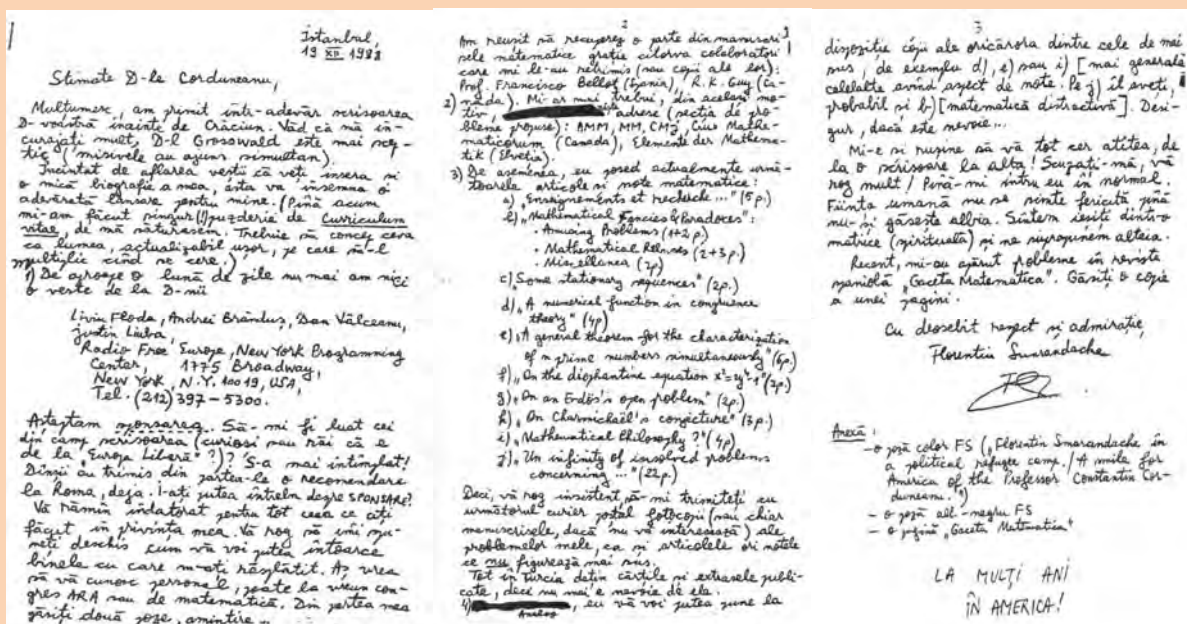 Istanbul,
19 XII 1988
Stimate D-le Corduneanu,
Mulțumesc, am primit într-adevăr scrisoarea
D-voastră înainte de Crăciun. Văd că mă în-
curajați mult, D-l Grosswald este mai scep-
tic (misivele au ajuns simultan).
Încîntat de aflarea veștii că veți insera și
o mică biografie a mea, ăsta va însemna o
adevărată lansare pentru mine. (Pînă acum
mi-am făcut singur(!) puzderie de Curriculum
vitae, de mă săturasem. Trebuie să concep ceva
ca lumea, actualizabil ușor, pe care să-l
multiplic cînd se cere.)
1) De aproape o lună de zile nu mai am nici
o veste de la D-nii
Liviu Floda, Andrei Brânduș, Dan Vâlceanu,
Justin Liuba,
Radio Free Europe, New York Programming
Center, 1775 Broadway,
New York, N.Y. 10019, USA,
Tel. (212) 397-5300.
Așteptam sponsarea. Să-mi fi luat cei
din camp scrisoarea (curioși sau răi că e
de la "Europa Liberă"?)? S-a mai întîmplat!
Dînșii au trimis din partea-le o recomandare
la Roma, deja. I-ați putea întreba despre SPONSARE?
Vă rămîn îndatorat pentru tot ceea ce ați
făcut în privința mea. Vă rog să îmi spu-
neți deschis cum vă voi putea întoarce
binele cu care m-ați răsplătit. Aș vrea
să vă cunosc personal, poate la vreun con-
gres ARA sau de matematică. Din partea mea
găsiți două poze, amintire
2
Am reușit să recuperez o parte din manuscri-
sele matematice grație cîtorva colaboratori
care mi le-au retrimis (sau copii ale lor):
Prof. Francisco Bellot (Spania), R.K. Guy (Ca-
nada).
2) Mi-ar mai trebui, din același mo-
tiv, adrese (secția de pro-
bleme propuse): AMM, MM, CMJ, Crux Mathe-
maticorum (Canada), Elemente der Mathema-
tik (Elveția).
3) De asemenea, eu posed actualmente urmă-
toarele articole și note matematice:
a) "Enseignements et recherche..." (5p.)
b) "Mathematical Fancies & Paradoxes":
• Amusing Problems (1+2p.)
• Mathematical Relaxes (2+3p.)
• Miscellanea (2p)
c) "Some stationary sequences" (2p.)
d) "A numerical function in congruence
theory" (4p)
e) "A general theorem for the characterization
of n prime numbers simultaneously" (6p.)
f) "On the diophantine equation x²=2y⁴-1" (2p.)
g) "On an Erdös's open problem" (2p.)
h) "On Charmichaël's conjecture" (3p.)
i) "Mathematical Philosophy?" (4p)
j) "Un infinity of unsolved problems
concerning ..." (22p.)
Deci, vă rog insistent să-mi trimiteți cu
următorul curier poștal fotocopii (sau chiar
manuscrisele, dacă nu vă interesează) ale
problemelor mele, ca și articolele ori notele
ce nu figurează mai sus.
Tot în Turcia dețin cărțile și extrasele publi-
cate, deci nu mai e nevoie de ele.
4) , eu vă voi putea pune la
3
dispoziție copii ale oricărora dintre cele de mai
sus, de exemplu d), e) sau i) [mai generale
celelalte avînd aspect de note. Pe j) îl aveți,
probabil și b) [matematică distractivă]. Desi-
gur, dacă este nevoie...
Mi-e și rușine să vă tot cer atîtea, de
la o scrisoare la alta! Scuzați-mă, vă
rog mult! Pînă-mi intru eu în normal.
Ființa umană nu se simte fericită pînă
nu-și găsește albia. Sîntem ieșiți dintr-o
matrice (spirituală) și ne suprapunem alteia.
Recent, mi-au apărut probleme în revista
spaniolă "Gaceta Matematica". Găsiți o copie
a unei pagini.
Cu deosebit respect și admirație,
Florentin Smarandache
Anexă:
- o poză color FS ("Florentin Smarandache in
a political refugee camp. / A smile for
America of the Professor Constantin Cor-
duneanu.")
- o poză alb-negru FS
- o pagină "Gaceta Matematica"
LA MULȚI ANI
ÎN AMERICA!